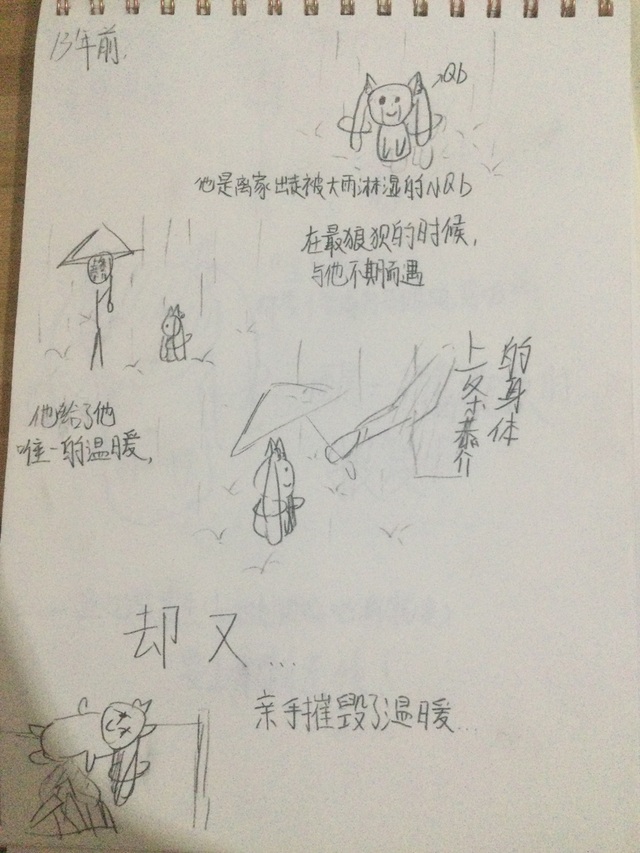 13年前.
Qb
他是离家出走被大雨淋湿的小Qb
在最狼狈的时候,
与他不期而遇
他给了他
唯一的温暖,
上条恭介
的身体
却又...
亲手摧毁了温暖...